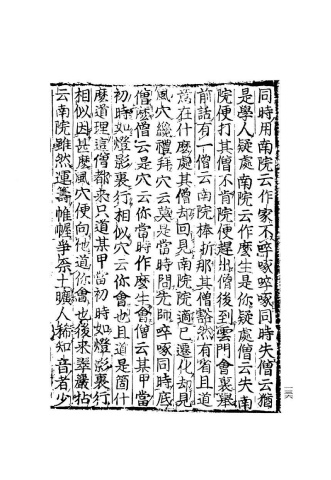 同時用南院云作家不啐啄啐啄同時失僧云猶
是學人疑處南院云作麼生是你疑處僧云失南
院便打其僧不肯院便趕出僧後到雲門會裏舉
前話有一僧云南院棒折那其僧豁然有省且道
意在什麼處其僧却回見南院院適已遷化却見
風穴纔禮拜穴云莫是當時問先師啐啄同時底
僧麼僧云是穴云你當時作麼生會僧云某甲當
初時如燈影裏行相似穴云你會也且道是箇什
麼道理這僧都來只道某甲當初時如燈影裏行
相似因甚麼風穴便向他道你會也後來翠巖拈
云南院雖然運籌帷幄爭柰土曠人稀知音者少